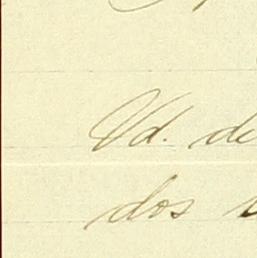 Vd. de
dos